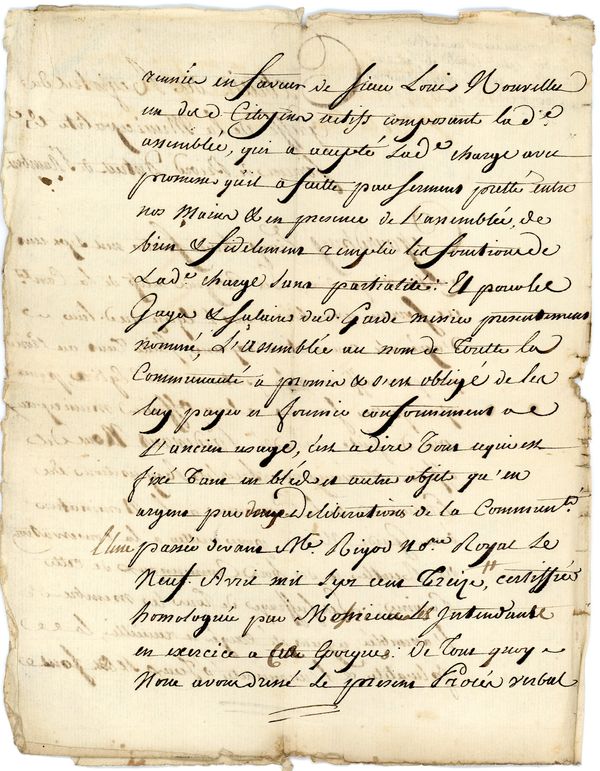 reunie en faveur de sieur Louis Nouvelle
un desd. Citoyens actifs composant lad.e
assemblée, qui a accepté Lad.e charge avec
promesse qu'il a faitte par serment pretté entre
nos Mains & en presence de L'assemblée, de
bien & fidelement remplir les fonctions de
Lad.e charge sans partialité. Et pour les
Gages & salaire dud. Garde messier presentement
nommé, L'assemblée au nom de Toutte la
Communauté a promis & s'est obligé de les
luy payer et fournir conformement a
L'ancien usage, c'est a dire Tout ce qui est
fixé Tant en bled et autre objet qu'en
argent par deux Deliberations de la Commun.té
l'une passée devant Me. Rigod No.re Royal Le
Neuf. Avril mil sept cent Treize, certiffiée
homologuée par Messieurs les Intendants
en exercice a Cette Epoque. De Tout quoy
Nous avons dressé Le present Procés verbal